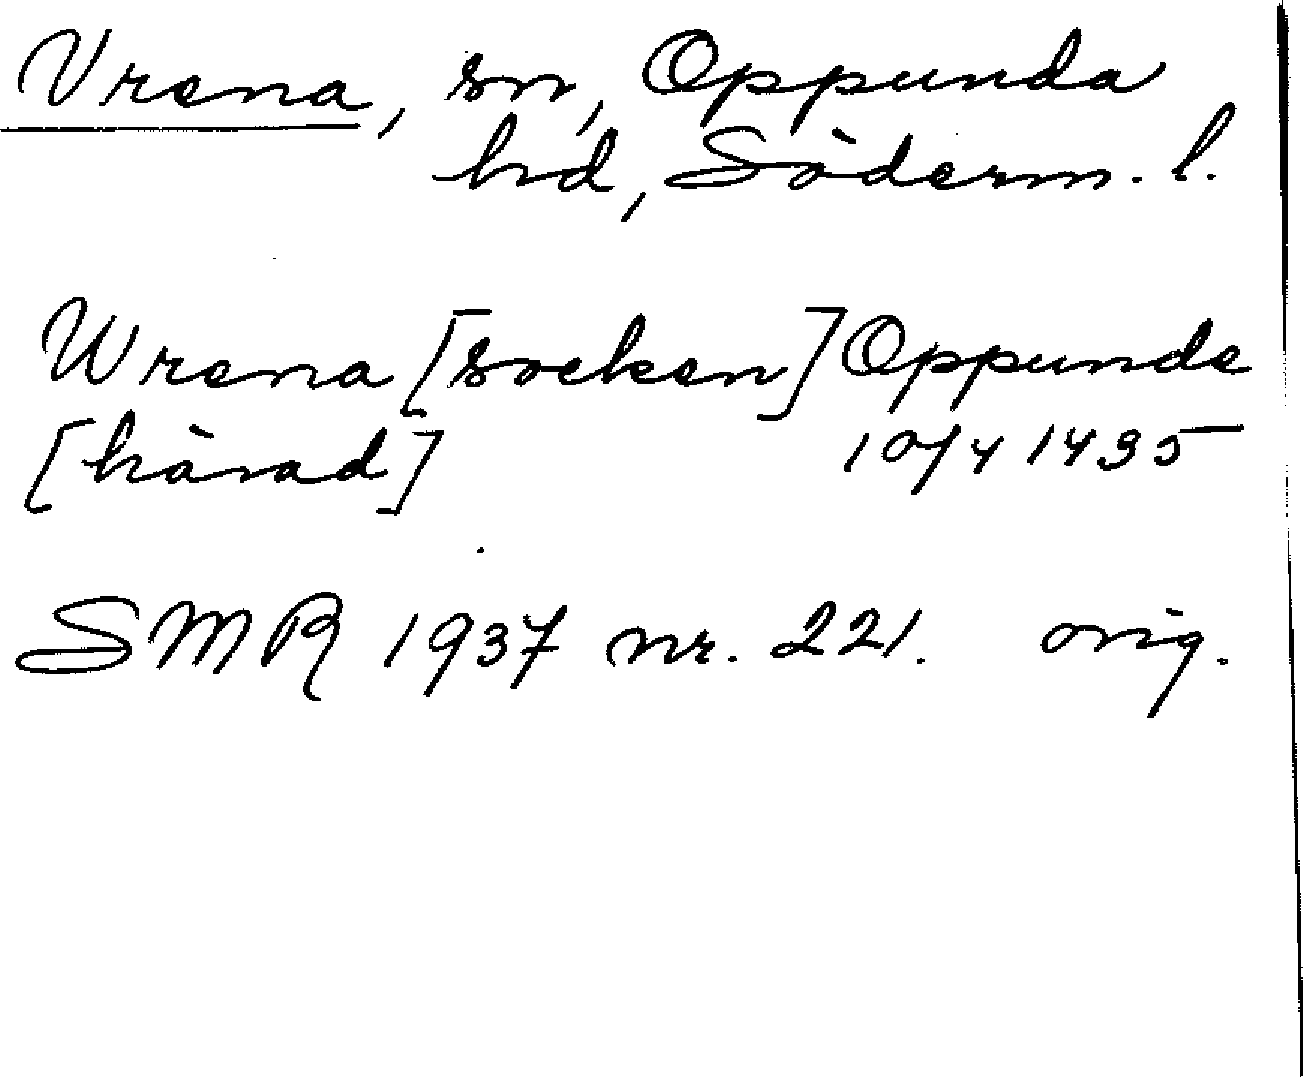 Vrena, sn, Oppunda
hd, Söderm. l.
Wrena [socken] Oppunde
[härad] 10/4 1495
SMR 1937 nr. 221. orig.